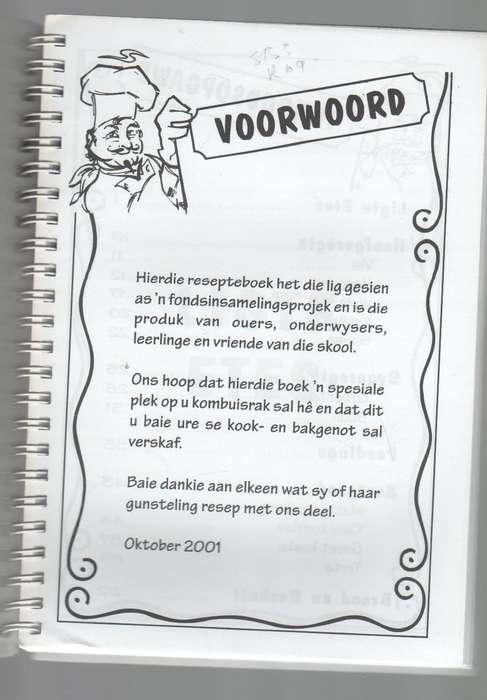 VOORWOORD
Hierdie resepteboek het die lig gesien
as 'n fondsinsamelingsprojek en is die
produk van ouers, onderwysers,
leerlinge en vriende van die skool.
Ons hoop dat hierdie boek 'n spesiale
plek op u kombuisrak sal hê en dat dit
u baie ure se kook- en bakgenot sal
verskaf.
Baie dankie aan elkeen wat sy of haar
gunsteling resep met ons deel.
Oktober 2001